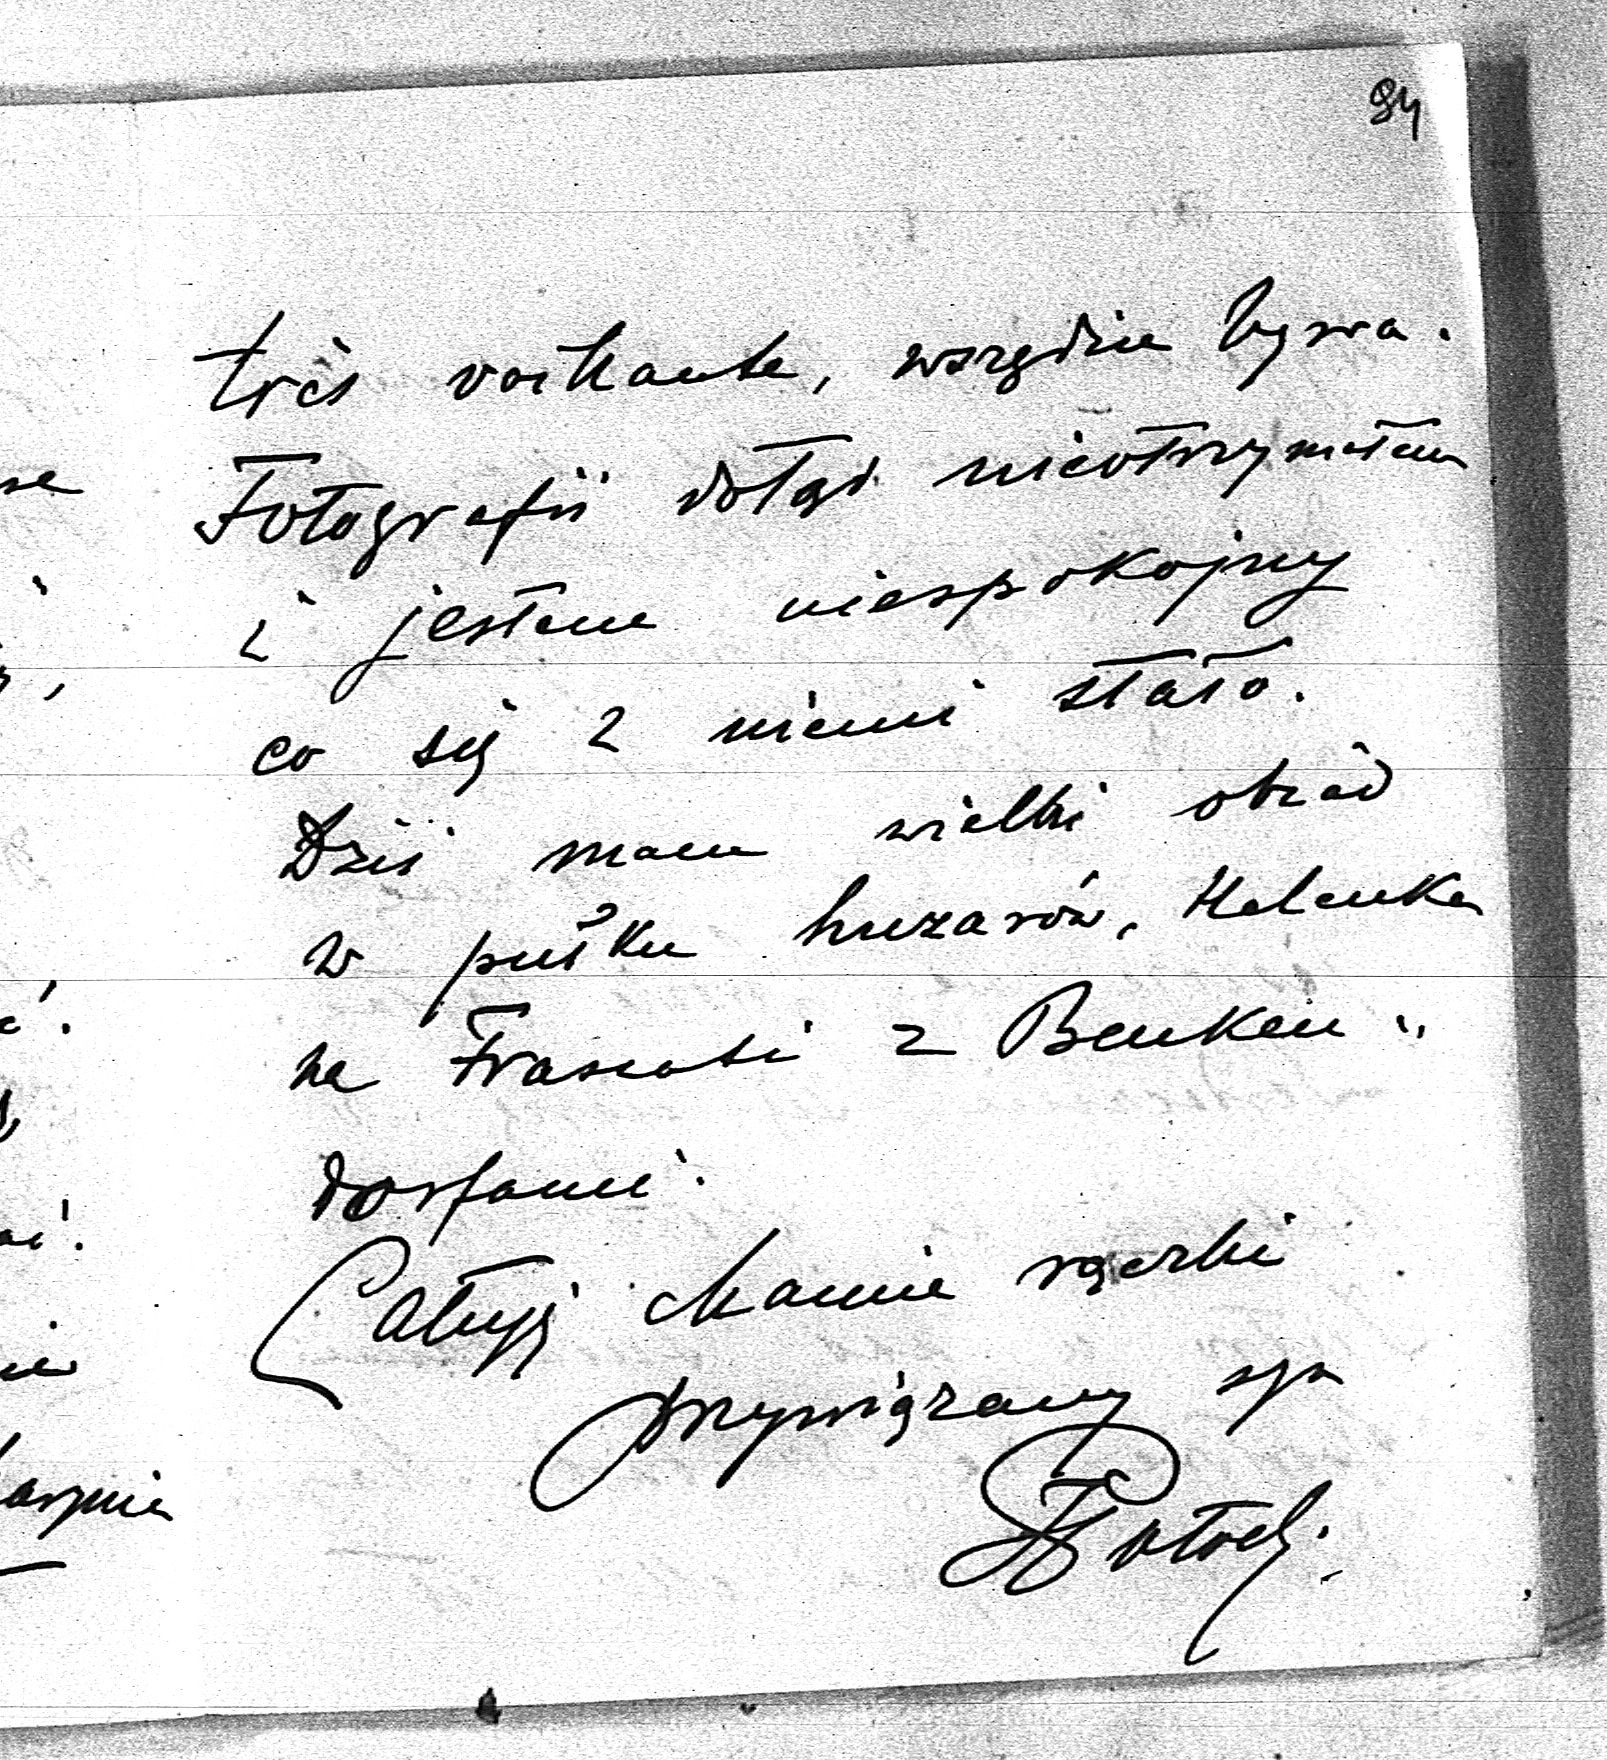 94
très voikante, wszędzie bywa.
Fotografii dotąd nieotrzymałem
i jestem niespokojny
co się z niemi stało.
Dziś mam wielki obiad
w pułku huzarów, Helenka
na Frascati z Benken„
dorfami.
Całuję Mamie rączki
przywiązany syn
Potocki